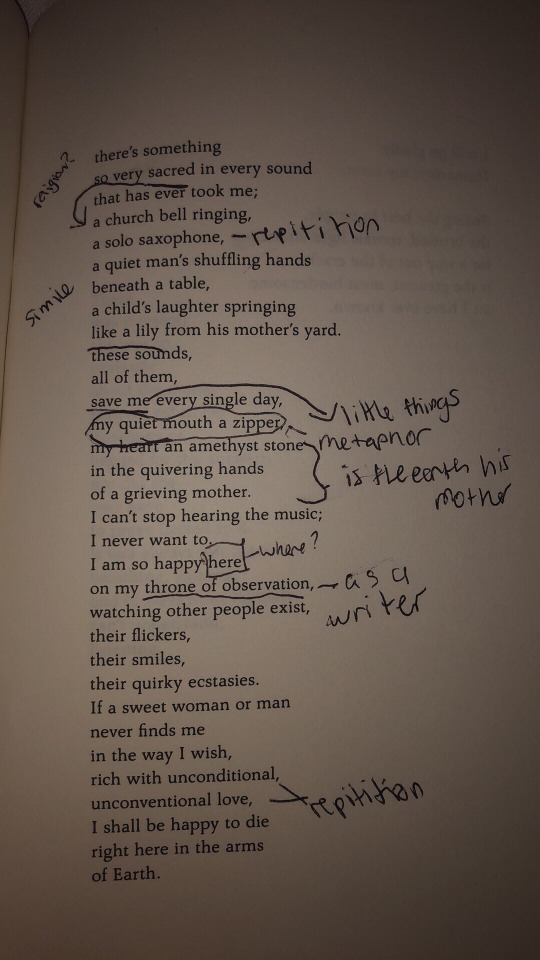 there's something
religion?
so very sacred in every sound
that has ever took me;
a church bell ringing,
a solo saxophone, – repitition
a quiet man's shuffling hands
beneath a table,
simile
a child's laughter springing
like a lily from his mother's yard.
these sounds,
all of them,
save me every single day,
little things
my quiet mouth a zipper,
metaphor
my heart an amethyst stone
in the quivering hands
is the earth his
mother
of a grieving mother.
I can't stop hearing the music;
I never want to.
I am so happy here
where?
on my throne of observation,
as a
writer
watching other people exist,
their flickers,
their smiles,
their quirky ecstasies.
If a sweet woman or man
never finds me
in the way I wish,
rich with unconditional,
unconventional love,
repitition
I shall be happy to die
right here in the arms
of Earth.